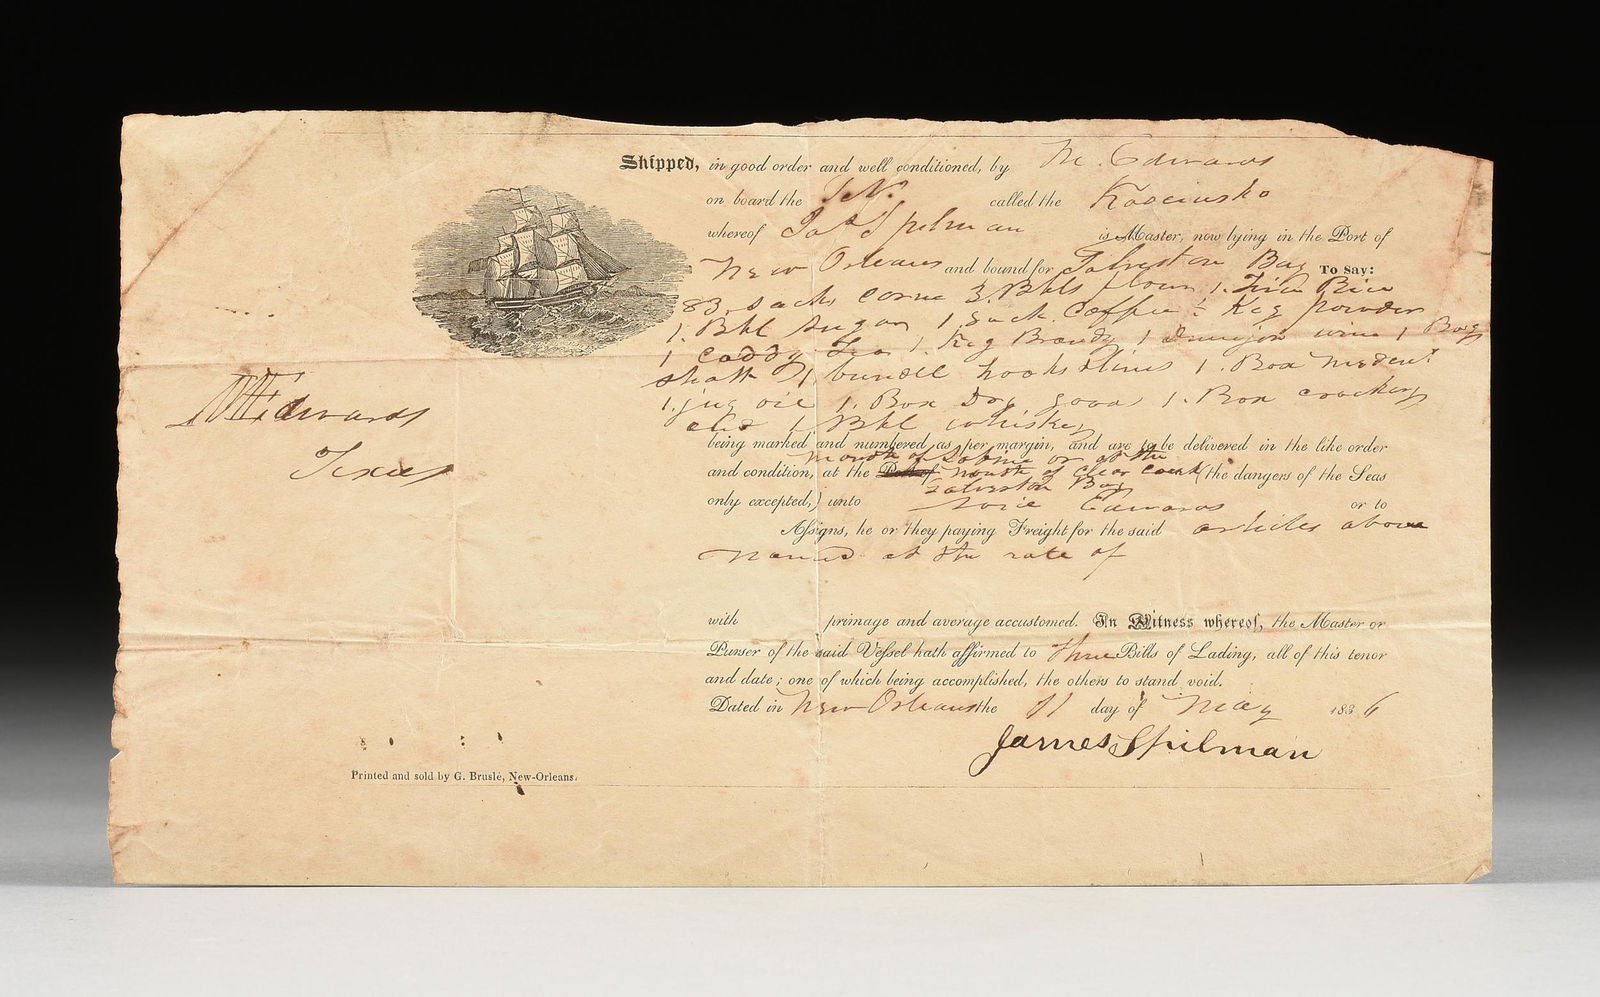 Shipped, in good order and well conditioned, by M. Edwards
on board the called the Kosciusko
whereof Jas Spilman is Master, now lying in the Port of
New Orleans and bound for Galveston Bay To Say:
83. sacks corne 3. Bbls flour 1. Rice
1. Bbl Sugar 1 Sack Coffee ½ Keg powder
1 caddy Tea 1. Keg Brandy 1 wine 1 Bag
shott 1 bundle hooks & lines 1. Box
1. jug oil 1. Box Dry goods 1. Box crockery
1 Bbl whiskey
being marked and numbered as per margin, and are to be delivered in the like order
mouth of Sabine or at the
and condition, at the Port of mouth of Clear Creek (the dangers of the Seas
Galveston Bay
only excepted,) unto Edwards or to
Assigns, he or they paying Freight for the said articles above
named at the rate of
with primage and average accustomed. In Witness whereof, the Master or
Purser of the said Vessel hath affirmed to three Bills of Lading, all of this tenor
and date; one of which being accomplished, the others to stand void.
Dated in New Orleans the 11 day of May 1836
James Spilman
M Edwards
Texas
Printed and sold by G. Bruslé, New-Orleans.